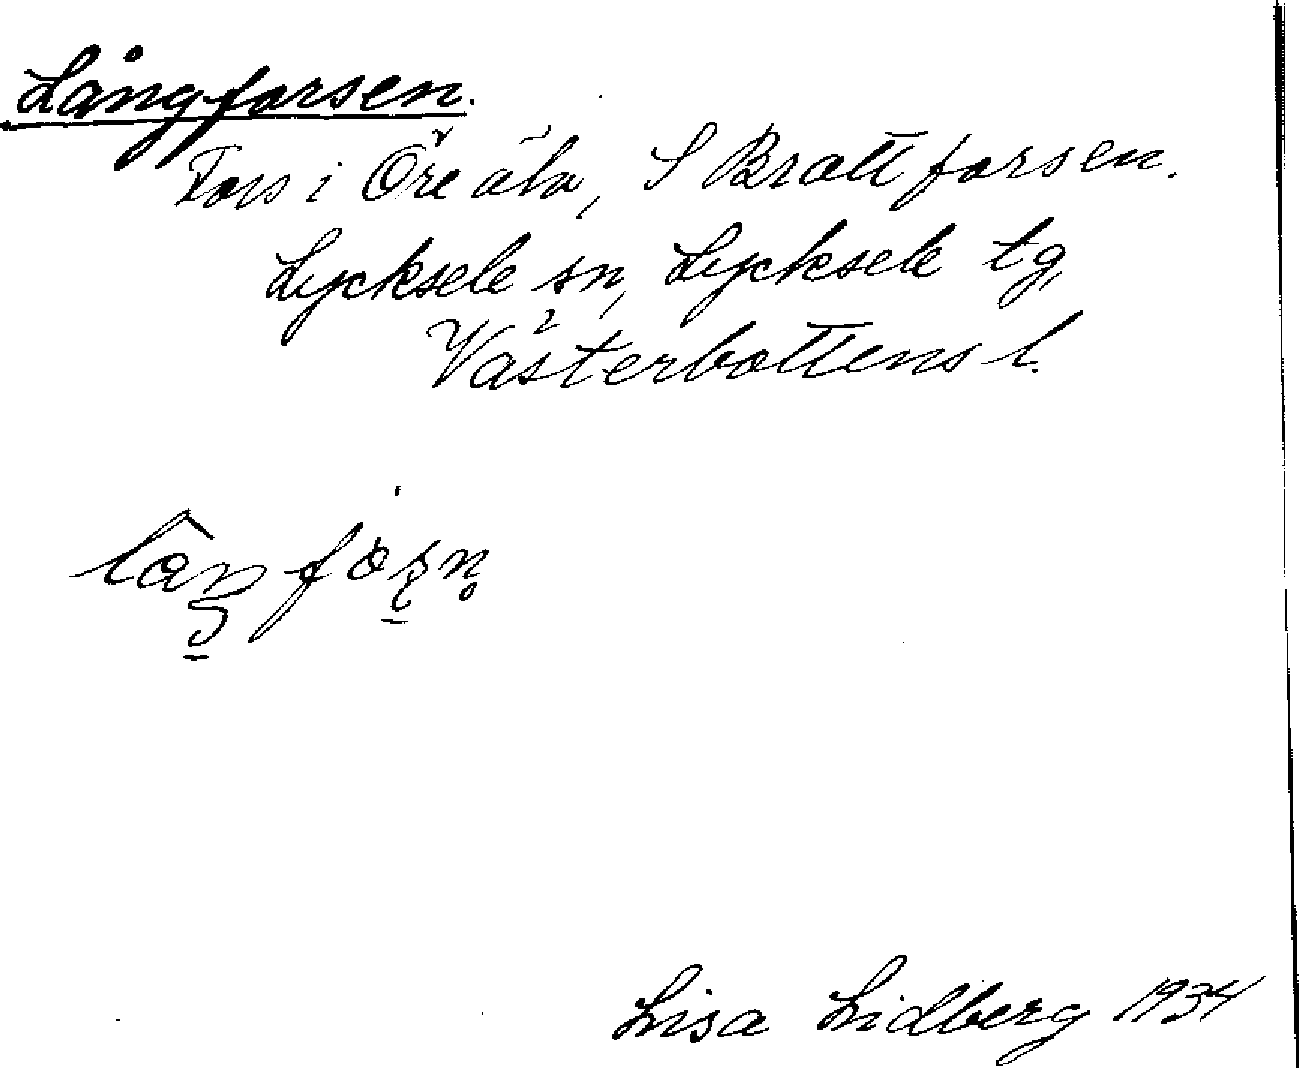 Långforsen.
Fors i Öre älv, S Brattforsen.
Lycksele sn, Lycksele tg,
Västerbottens l.
Lisa Lidberg 1934